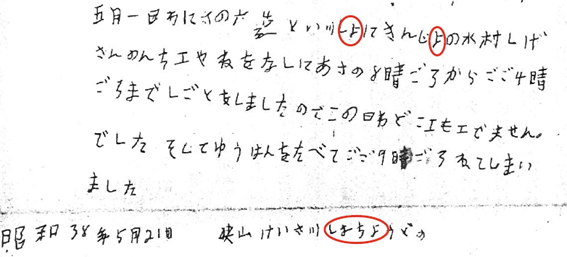 五月一日わにさの六造といツしよにきんじよの水村しげ
さんのんちエやねをなしにあさの8時ごろからごご4時
ごろまでしごとをしましたのでこの日わどこエもエでません。
でした そしてゆうはんをたべてごご9時ごろねてしまい
ました
昭和38年5月21日 狭山けいさツしよちよう どの